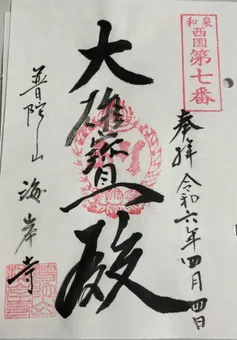 和泉
西国
第七番
奉拝 令和六年四月四日
大雄寳殿
普陀山 海岸寺